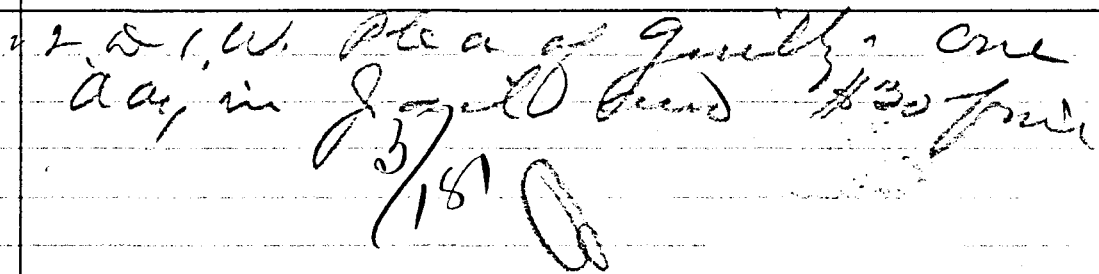 D.W. Plea of guilty. One
day in Jail and $30 fine
5/18